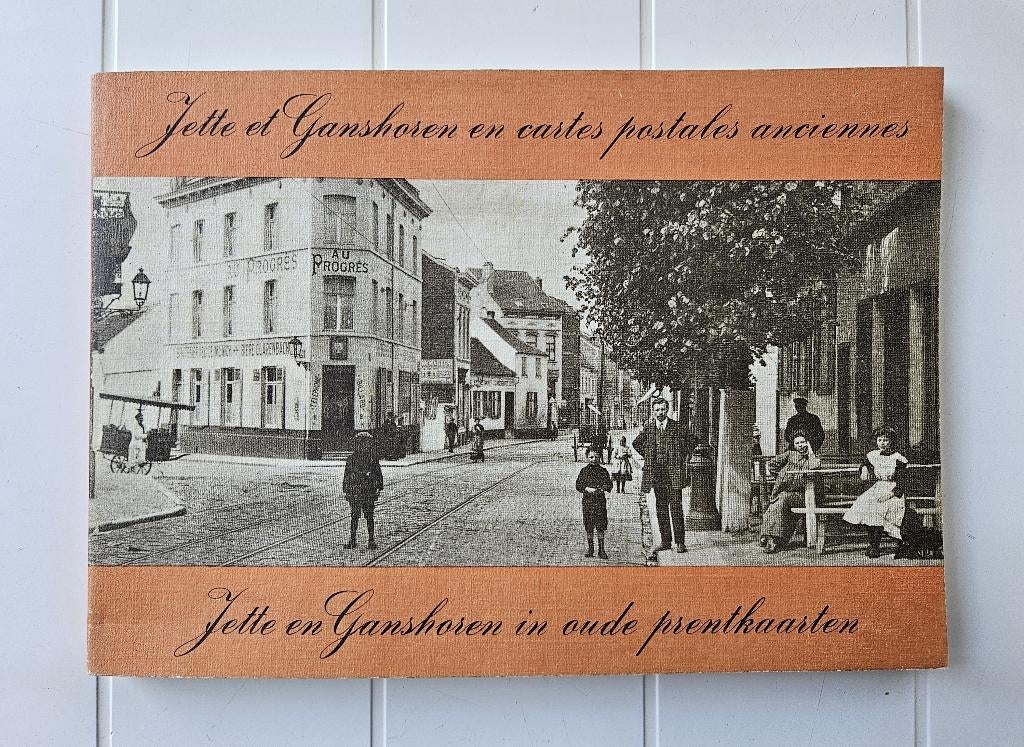 Jette et Ganshoren en cartes postales anciennes
AU PROGRÈS
AU
PROGRÈS
Jette en Ganshoren in oude prentkaarten